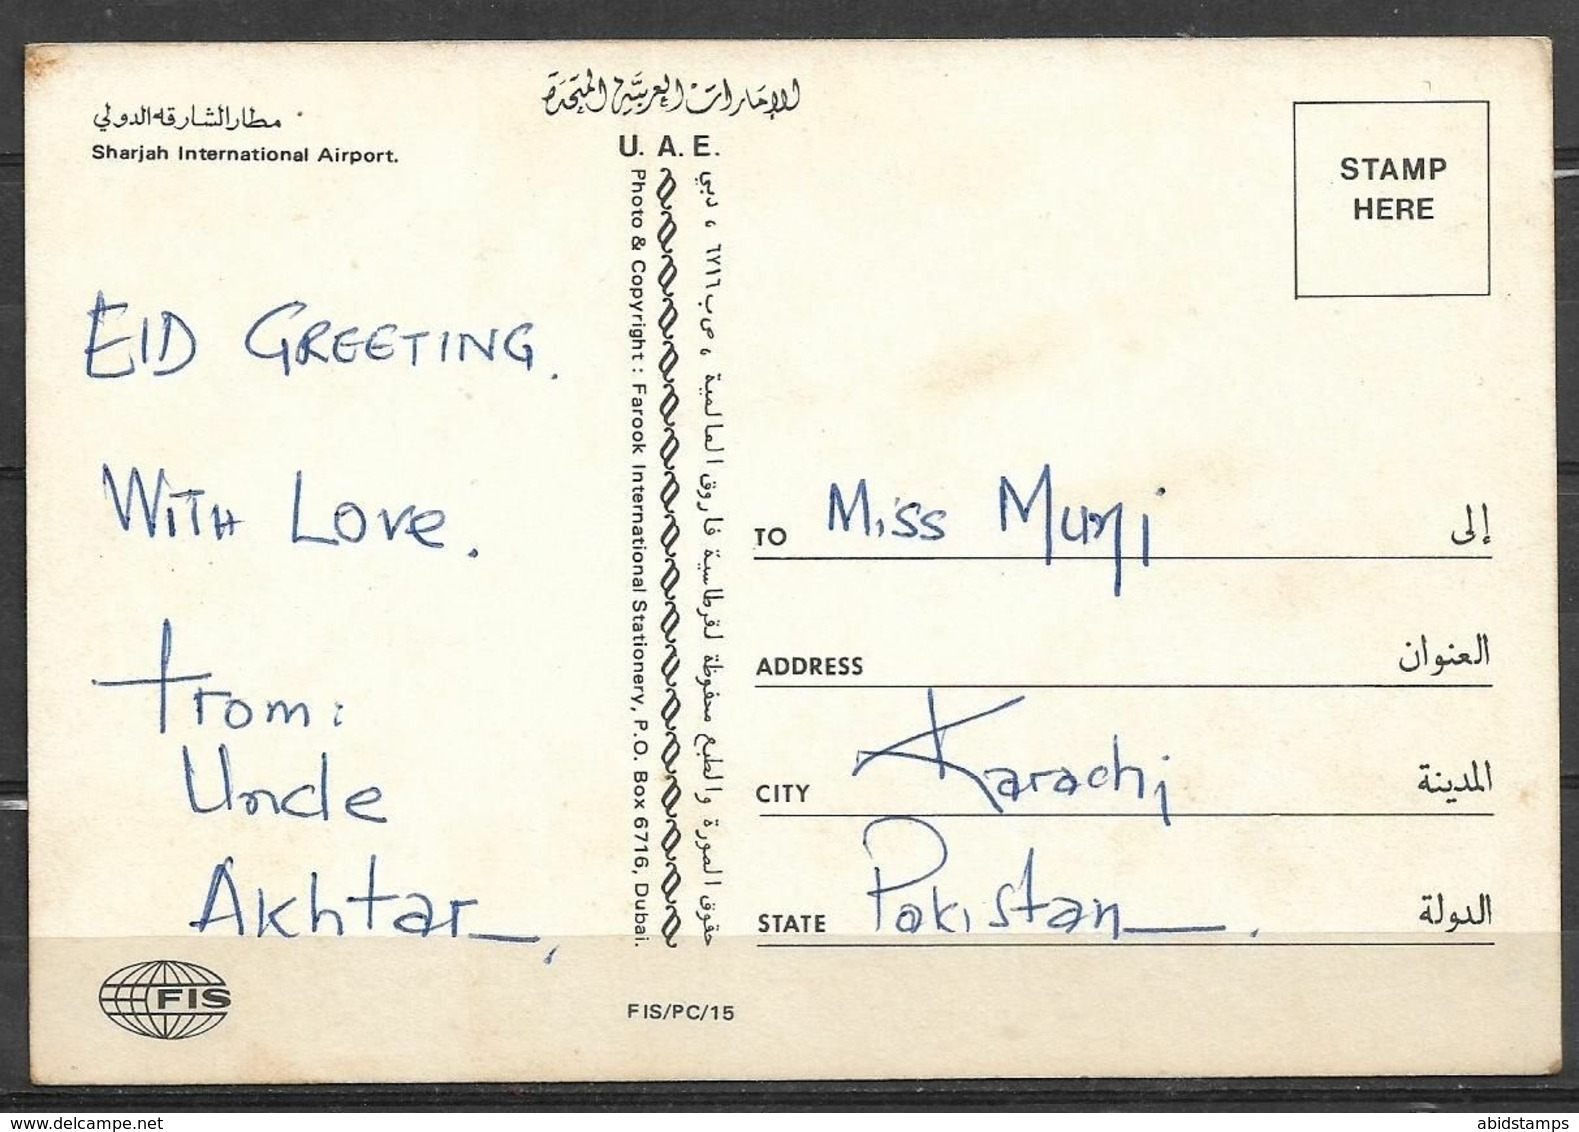 مطار الشارقه الدولي
Sharjah International Airport.
EID GREETING.
WITH LOVE.
From:
Uncle
Akhtar.
FIS
الإمارات العربية المتحدة
U. A. E.
Photo & Copyright : Farook International Stationery, P.O. Box 6716, Dubai.
حقوق الصورة والطبع محفوظة لقرطاسية فاروق العالمية ، ص ب ٦٧١٦ ، دبي
FIS/PC/15
STAMP
HERE
TO Miss Muni إلى
ADDRESS العنوان
CITY Karachi المدينة
STATE Pakistan. الدولة
delcampe.net
abidstamps